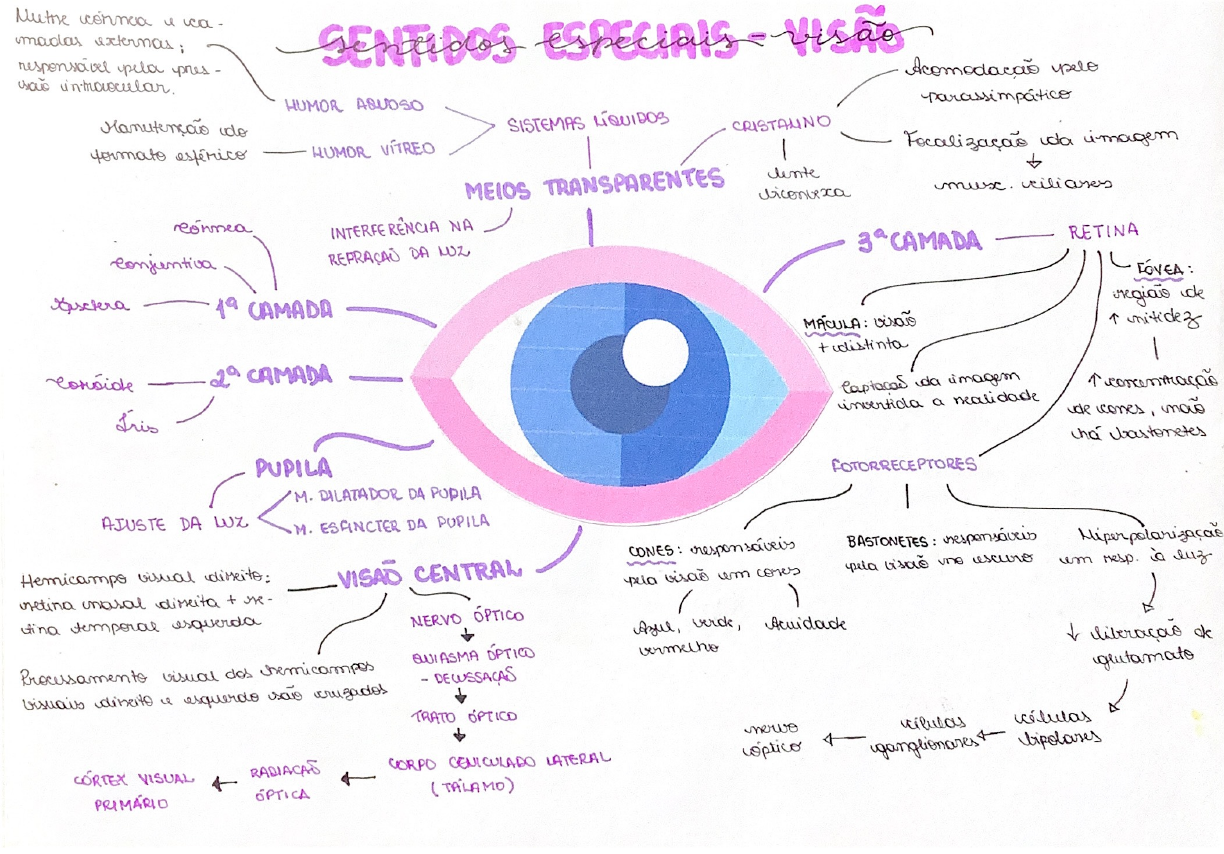 SENTIDOS ESPECIAIS - visão
Nutre córnea e ca-
madas externas;
responsável pela pres-
são intraocular.
HUMOR AQUOSO
Manutenção do
formato esférico
HUMOR VÍTREO
SISTEMAS LÍQUIDOS
CRISTALINO
Acomodação pelo
parassimpático
Focalização da imagem
musc. ciliares
lente
biconvexa
MEIOS TRANSPARENTES
INTERFERÊNCIA NA
REFRAÇÃO DA LUZ
Córnea
Conjuntiva
Esclera
1ª CAMADA
Coróide
2ª CAMADA
Íris
PUPILA
AJUSTE DA LUZ
M. DILATADOR DA PUPILA
M. ESFÍNCTER DA PUPILA
3ª CAMADA
RETINA
FÓVEA:
região de
↑ nitidez
↑ concentração
de cones, não
há bastonetes
MÁCULA: visão
+ distinta
Captação da imagem
invertida a realidade
FOTORRECEPTORES
CONES: responsáveis
pela visão em cores
Azul, verde,
vermelho
Acuidade
BASTONETES: responsáveis
pela visão no escuro
Hiperpolarização
em resp. à luz
↓ liberação de
glutamato
células
bipolares
células
ganglionares
nervo
óptico
VISÃO CENTRAL
Hemicampo visual direito:
retina nasal direita + re-
tina temporal esquerda
Processamento visual dos hemicampos
visuais direito e esquerdo são cruzados
NERVO ÓPTICO
QUIASMA ÓPTICO
- DECUSSAÇÃO
TRATO ÓPTICO
CORPO GENICULADO LATERAL
(TÁLAMO)
RADIAÇÃO
ÓPTICA
CÓRTEX VISUAL
PRIMÁRIO